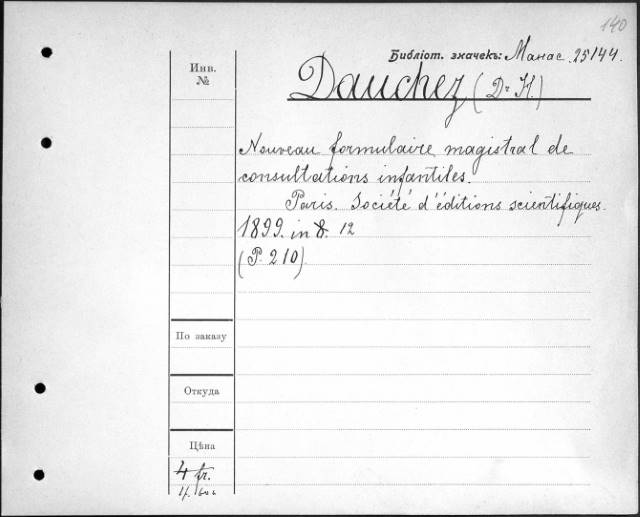 140
Библіот. значекъ: Манас. 25144.
Инв.
№
Dauchez (Dr H.)
Nouveau formulaire magistral de
consultations infantiles.
Paris. Société d'éditions scientifiques.
1899. in 8. 12
(P. 210).
По заказу
Откуда
Цѣна
4 fr.
4.